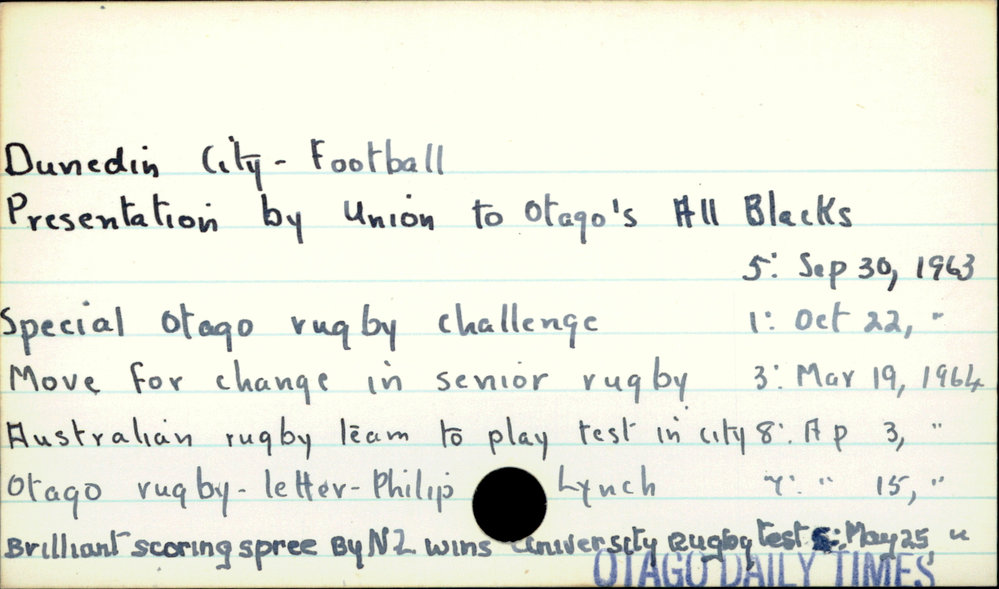 Dunedin City - Football
Presentation by Union to Otago's All Blacks
5: Sep 30, 1963
Special Otago rugby challenge 1: Oct 22, "
Move for change in senior rugby 3: Mar 19, 1964
Australian rugby team to play test in city 8: Ap 3, "
Otago rugby - letter - Philip Lynch 7: " 15, "
Brilliant scoring spree By NZ wins University Rugby test : May 25 "
OTAGO DAILY TIMES